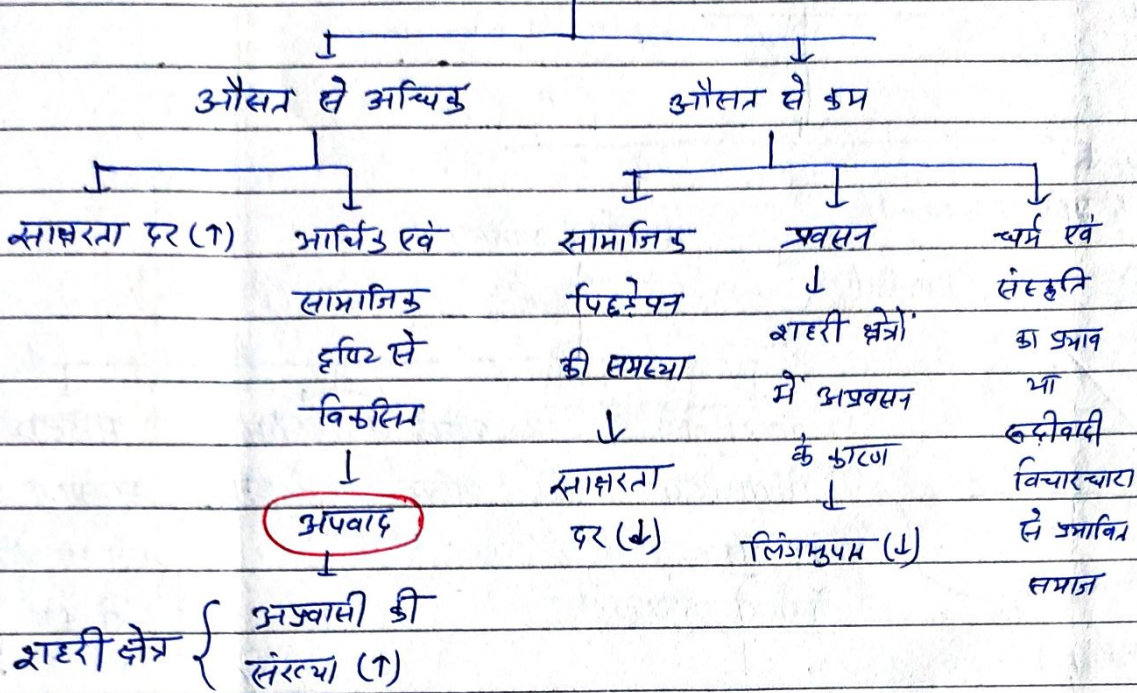 औसत से अधिक
औसत से कम
साक्षरता दर (↑)
आर्थिक एवं
सामाजिक
दृष्टि से
विकसित
↓
अपवाद
↓
शहरी क्षेत्र { अप्रवासी की
संख्या (↑)
सामाजिक
पिछड़ेपन
की समस्या
↓
साक्षरता
दर (↓)
प्रवसन
↓
शहरी क्षेत्रों
में अप्रवसन
के कारण
↓
लिंगानुपात (↓)
धर्म एवं
संस्कृति
का प्रभाव
या
रूढ़ीवादी
विचारधारा
से प्रभावित
समाज